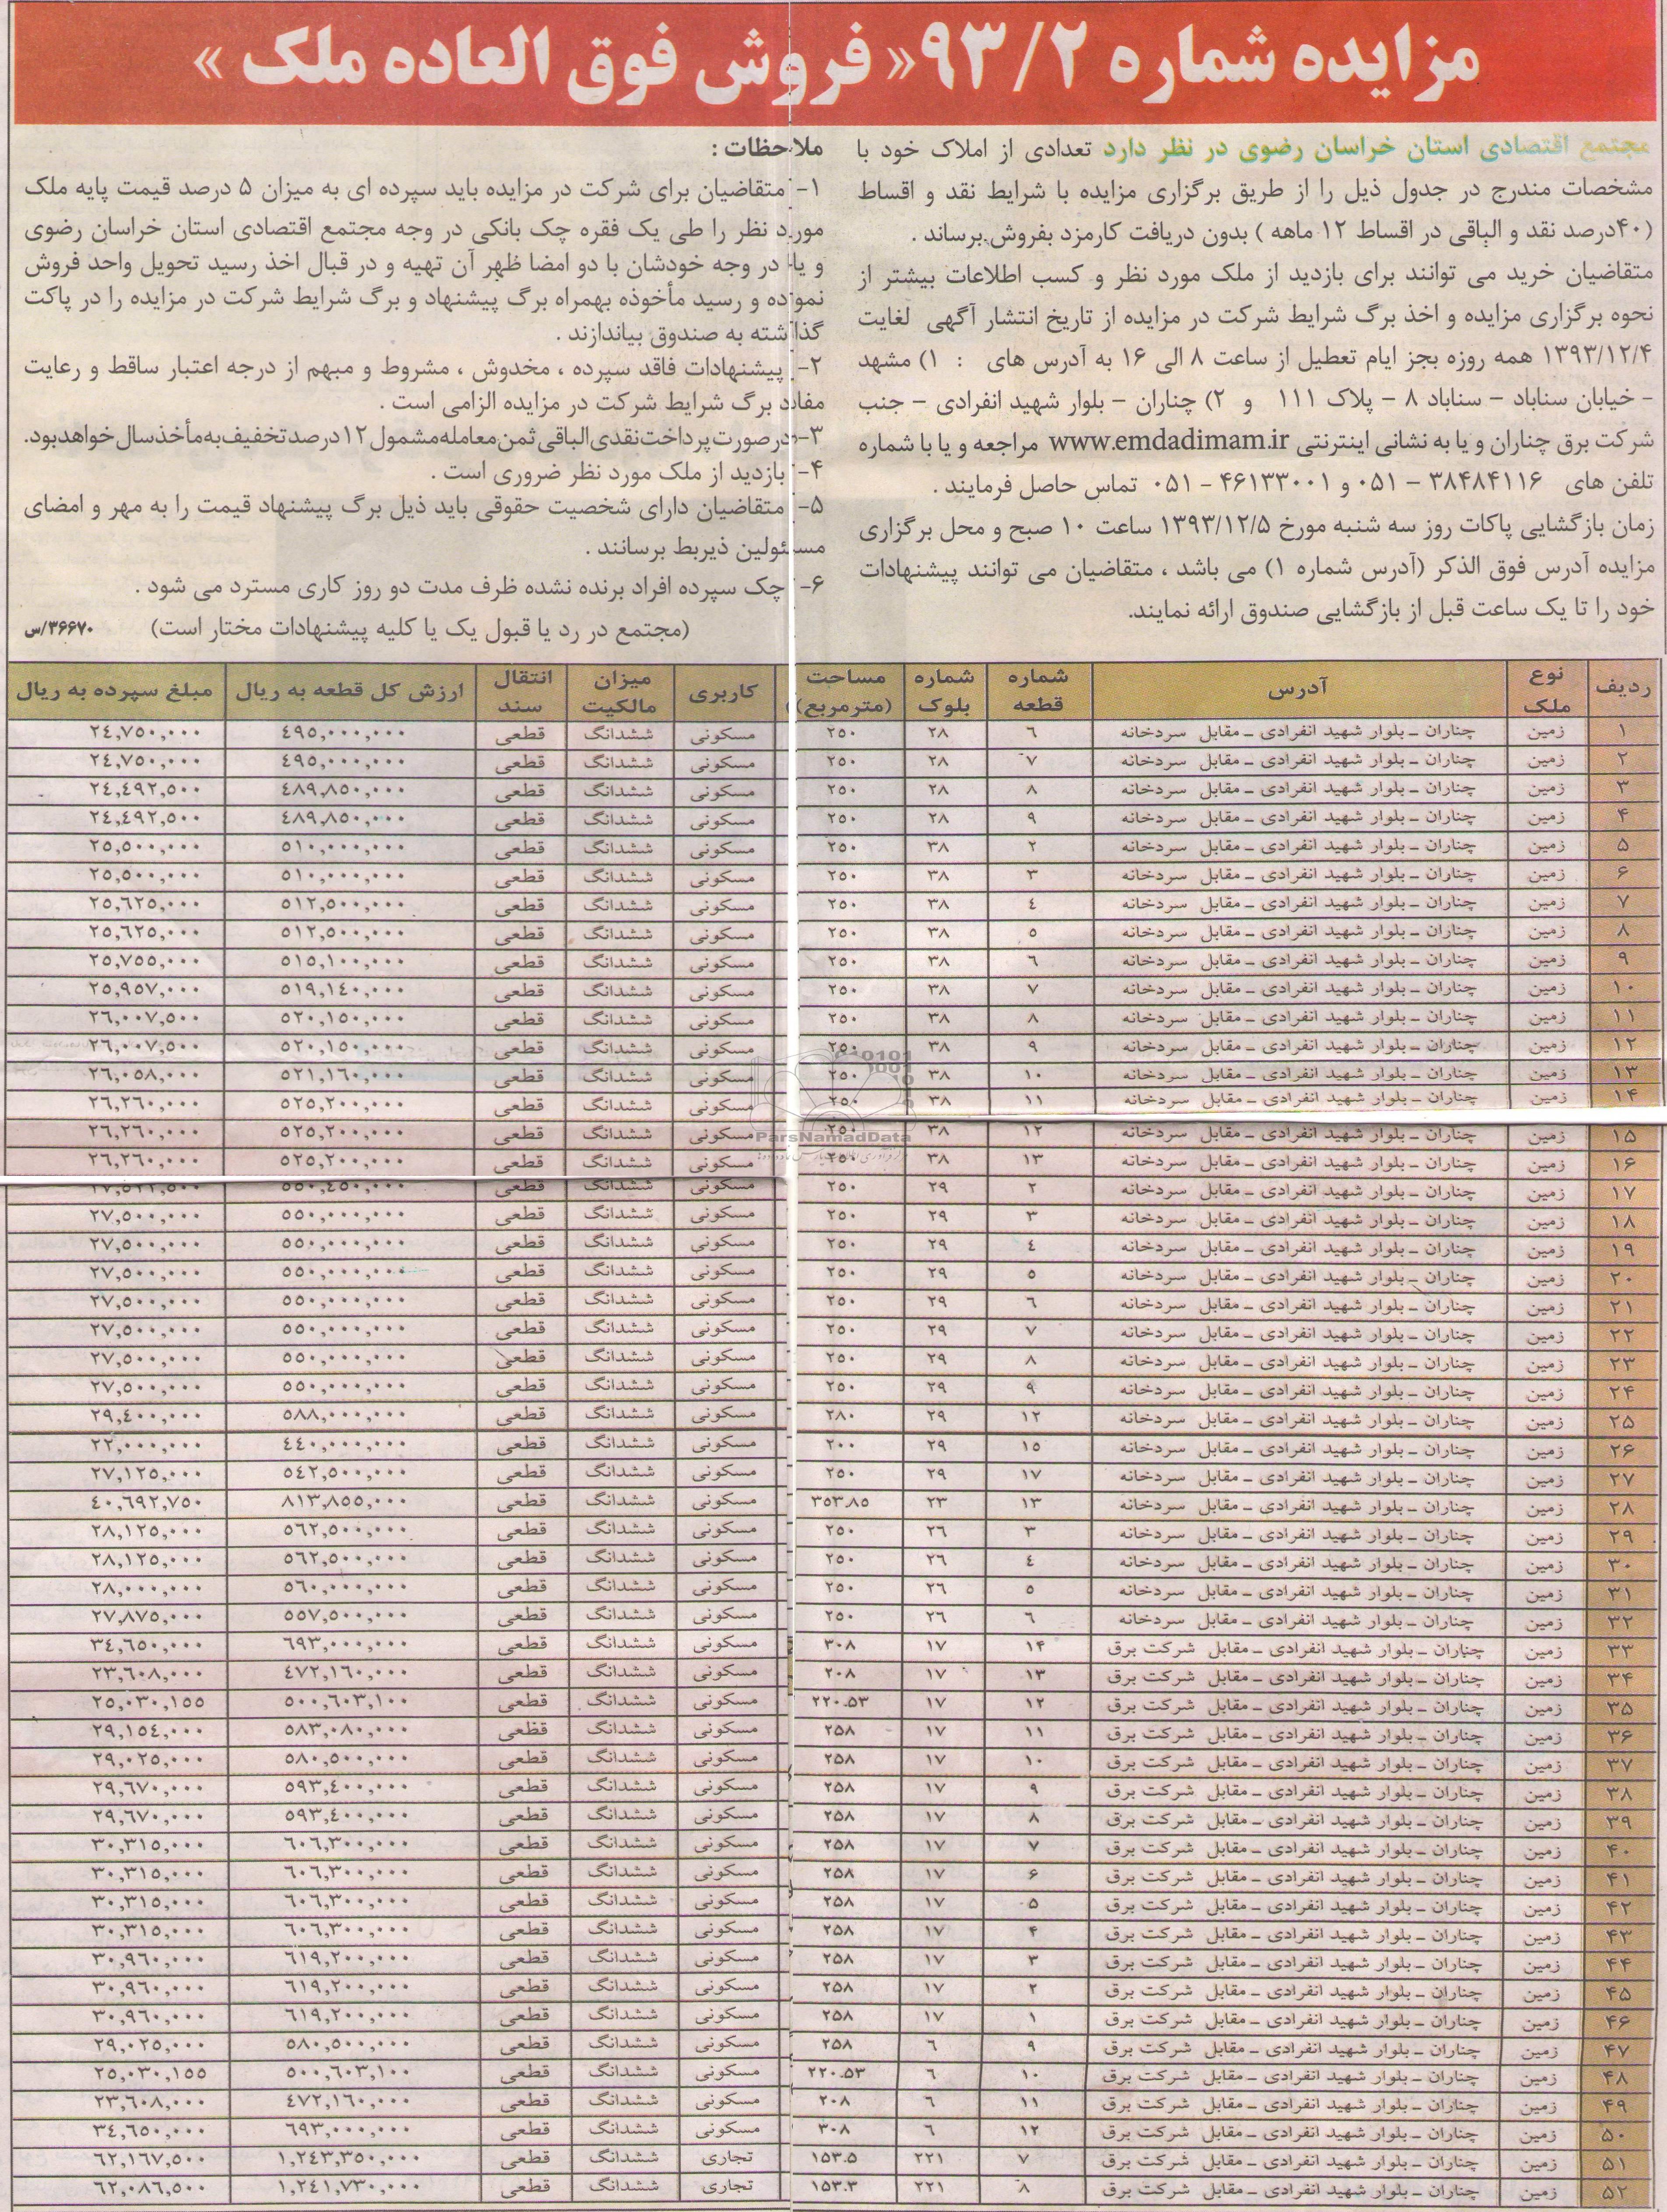 مزایده شماره ۹۳/۲ « فروش فوق العاده ملک »
مجتمع اقتصادی استان خراسان رضوی در نظر دارد تعدادی از املاک خود با
مشخصات مندرج در جدول ذیل را از طریق برگزاری مزایده با شرایط نقد و اقساط
(۴۰درصد نقد و الباقی در اقساط ۱۲ ماهه ) بدون دریافت کارمزد بفروش برساند .
متقاضیان خرید می توانند برای بازدید از ملک مورد نظر و کسب اطلاعات بیشتر از
نحوه برگزاری مزایده و اخذ برگ شرایط شرکت در مزایده از تاریخ انتشار آگهی لغایت
۱۳۹۳/۱۲/۴ همه روزه بجز ایام تعطیل از ساعت ۸ الی ۱۶ به آدرس های : ۱) مشهد
- خیابان سناباد – سناباد ۸ – پلاک ۱۱۱ و ۲) چناران – بلوار شهید انفرادی – جنب
شرکت برق چناران و یا به نشانی اینترنتی www.emdadimam.ir مراجعه و یا با شماره
تلفن های ۳۸۴۸۴۱۱۶ – ۰۵۱ و ۴۶۱۳۳۰۰۱ – ۰۵۱ تماس حاصل فرمایند .
زمان بازگشایی پاکات روز سه شنبه مورخ ۱۳۹۳/۱۲/۵ ساعت ۱۰ صبح و محل برگزاری
مزایده آدرس فوق الذکر (آدرس شماره ۱) می باشد ، متقاضیان می توانند پیشنهادات
خود را تا یک ساعت قبل از بازگشایی صندوق ارائه نمایند.
ملاحظات :
۱- متقاضیان برای شرکت در مزایده باید سپرده ای به میزان ۵ درصد قیمت پایه ملک
مورد نظر را طی یک فقره چک بانکی در وجه مجتمع اقتصادی استان خراسان رضوی
و یا در وجه خودشان با دو امضا ظهر آن تهیه و در قبال اخذ رسید تحویل واحد فروش
نموده و رسید مأخوذه بهمراه برگ پیشنهاد و برگ شرایط شرکت در مزایده را در پاکت
گذاشته به صندوق بیاندازند .
۲- پیشنهادات فاقد سپرده ، مخدوش ، مشروط و مبهم از درجه اعتبار ساقط و رعایت
مفاد برگ شرایط شرکت در مزایده الزامی است .
۳- در صورت پرداخت نقدی الباقی ثمن معامله مشمول ۱۲ درصد تخفیف به مأخذ سال خواهد بود.
۴- بازدید از ملک مورد نظر ضروری است .
۵- متقاضیان دارای شخصیت حقوقی باید ذیل برگ پیشنهاد قیمت را به مهر و امضای
مسئولین ذیربط برسانند .
۶- چک سپرده افراد برنده نشده ظرف مدت دو روز کاری مسترد می شود .
(مجتمع در رد یا قبول یک یا کلیه پیشنهادات مختار است) ۳۶۶۷۰/س
ردیف نوع ملک آدرس شماره قطعه شماره بلوک مساحت (مترمربع) کاربری میزان مالکیت انتقال سند ارزش کل قطعه به ریال مبلغ سپرده به ریال
۱ زمین چناران ـ بلوار شهید انفرادی ـ مقابل سردخانه ٦ ۲۸ ۲۵۰ مسکونی ششدانگ قطعی ٤۹۵,۰۰۰,۰۰۰ ۲٤,۷۵۰,۰۰۰
۲ زمین چناران ـ بلوار شهید انفرادی ـ مقابل سردخانه ۷ ۲۸ ۲۵۰ مسکونی ششدانگ قطعی ٤۹۵,۰۰۰,۰۰۰ ۲٤,۷۵۰,۰۰۰
۳ زمین چناران ـ بلوار شهید انفرادی ـ مقابل سردخانه ۸ ۲۸ ۲۵۰ مسکونی ششدانگ قطعی ٤۸۹,۸۵۰,۰۰۰ ۲٤,٤۹۲,۵۰۰
۴ زمین چناران ـ بلوار شهید انفرادی ـ مقابل سردخانه ۹ ۲۸ ۲۵۰ مسکونی ششدانگ قطعی ٤۸۹,۸۵۰,۰۰۰ ۲٤,٤۹۲,۵۰۰
۵ زمین چناران ـ بلوار شهید انفرادی ـ مقابل سردخانه ۲ ۳۸ ۲۵۰ مسکونی ششدانگ قطعی ۵۱۰,۰۰۰,۰۰۰ ۲۵,۵۰۰,۰۰۰
۶ زمین چناران ـ بلوار شهید انفرادی ـ مقابل سردخانه ۳ ۳۸ ۲۵۰ مسکونی ششدانگ قطعی ۵۱۰,۰۰۰,۰۰۰ ۲۵,۵۰۰,۰۰۰
۷ زمین چناران ـ بلوار شهید انفرادی ـ مقابل سردخانه ٤ ۳۸ ۲۵۰ مسکونی ششدانگ قطعی ۵۱۲,۵۰۰,۰۰۰ ۲۵,٦۲۵,۰۰۰
۸ زمین چناران ـ بلوار شهید انفرادی ـ مقابل سردخانه ۵ ۳۸ ۲۵۰ مسکونی ششدانگ قطعی ۵۱۲,۵۰۰,۰۰۰ ۲۵,٦۲۵,۰۰۰
۹ زمین چناران ـ بلوار شهید انفرادی ـ مقابل سردخانه ٦ ۳۸ ۲۵۰ مسکونی ششدانگ قطعی ۵۱۵,۱۰۰,۰۰۰ ۲۵,۷۵۵,۰۰۰
۱۰ زمین چناران ـ بلوار شهید انفرادی ـ مقابل سردخانه ۷ ۳۸ ۲۵۰ مسکونی ششدانگ قطعی ۵۱۹,۱٤۰,۰۰۰ ۲۵,۹۵۷,۰۰۰
۱۱ زمین چناران ـ بلوار شهید انفرادی ـ مقابل سردخانه ۸ ۳۸ ۲۵۰ مسکونی ششدانگ قطعی ۵۲۰,۱۵۰,۰۰۰ ۲٦,۰۰۷,۵۰۰
۱۲ زمین چناران ـ بلوار شهید انفرادی ـ مقابل سردخانه ۹ ۳۸ ۲۵۰ مسکونی ششدانگ قطعی ۵۲۰,۱۵۰,۰۰۰ ۲٦,۰۰۷,۵۰۰
۱۳ زمین چناران ـ بلوار شهید انفرادی ـ مقابل سردخانه ۱۰ ۳۸ ۲۵۰ مسکونی ششدانگ قطعی ۵۲۱,۱٦۰,۰۰۰ ۲٦,۰۵۸,۰۰۰
۱۴ زمین چناران ـ بلوار شهید انفرادی ـ مقابل سردخانه ۱۱ ۳۸ ۲۵۰ مسکونی ششدانگ قطعی ۵۲۵,۲۰۰,۰۰۰ ۲٦,۲٦۰,۰۰۰
۱۵ زمین چناران ـ بلوار شهید انفرادی ـ مقابل سردخانه ۱۲ ۳۸ ۲۵۰ مسکونی ششدانگ قطعی ۵۲۵,۲۰۰,۰۰۰ ۲٦,۲٦۰,۰۰۰
۱۶ زمین چناران ـ بلوار شهید انفرادی ـ مقابل سردخانه ۱۳ ۳۸ ۲۵۰ مسکونی ششدانگ قطعی ۵۲۵,۲۰۰,۰۰۰ ۲٦,۲٦۰,۰۰۰
۱۷ زمین چناران ـ بلوار شهید انفرادی ـ مقابل سردخانه ۲ ۲۹ ۲۵۰ مسکونی ششدانگ قطعی ۵۵۰,٤۵۰,۰۰۰
۱۸ زمین چناران ـ بلوار شهید انفرادی ـ مقابل سردخانه ۳ ۲۹ ۲۵۰ مسکونی ششدانگ قطعی ۵۵۰,۰۰۰,۰۰۰ ۲۷,۵۰۰,۰۰۰
۱۹ زمین چناران ـ بلوار شهید انفرادی ـ مقابل سردخانه ٤ ۲۹ ۲۵۰ مسکونی ششدانگ قطعی ۵۵۰,۰۰۰,۰۰۰ ۲۷,۵۰۰,۰۰۰
۲۰ زمین چناران ـ بلوار شهید انفرادی ـ مقابل سردخانه ۵ ۲۹ ۲۵۰ مسکونی ششدانگ قطعی ۵۵۰,۰۰۰,۰۰۰ ۲۷,۵۰۰,۰۰۰
۲۱ زمین چناران ـ بلوار شهید انفرادی ـ مقابل سردخانه ٦ ۲۹ ۲۵۰ مسکونی ششدانگ قطعی ۵۵۰,۰۰۰,۰۰۰ ۲۷,۵۰۰,۰۰۰
۲۲ زمین چناران ـ بلوار شهید انفرادی ـ مقابل سردخانه ۷ ۲۹ ۲۵۰ مسکونی ششدانگ قطعی ۵۵۰,۰۰۰,۰۰۰ ۲۷,۵۰۰,۰۰۰
۲۳ زمین چناران ـ بلوار شهید انفرادی ـ مقابل سردخانه ۸ ۲۹ ۲۵۰ مسکونی ششدانگ قطعی ۵۵۰,۰۰۰,۰۰۰ ۲۷,۵۰۰,۰۰۰
۲۴ زمین چناران ـ بلوار شهید انفرادی ـ مقابل سردخانه ۹ ۲۹ ۲۵۰ مسکونی ششدانگ قطعی ۵۵۰,۰۰۰,۰۰۰ ۲۷,۵۰۰,۰۰۰
۲۵ زمین چناران ـ بلوار شهید انفرادی ـ مقابل سردخانه ۱۲ ۲۹ ۲۸۰ مسکونی ششدانگ قطعی ۵۸۸,۰۰۰,۰۰۰ ۲۹,٤۰۰,۰۰۰
۲۶ زمین چناران ـ بلوار شهید انفرادی ـ مقابل سردخانه ۱۵ ۲۹ ۲۰۰ مسکونی ششدانگ قطعی ٤٤۰,۰۰۰,۰۰۰ ۲۲,۰۰۰,۰۰۰
۲۷ زمین چناران ـ بلوار شهید انفرادی ـ مقابل سردخانه ۱۷ ۲۹ ۲۵۰ مسکونی ششدانگ قطعی ۵٤۲,۵۰۰,۰۰۰ ۲۷,۱۲۵,۰۰۰
۲۸ زمین چناران ـ بلوار شهید انفرادی ـ مقابل سردخانه ۱۳ ۲۳ ۳۵۳.۸۵ مسکونی ششدانگ قطعی ۸۱۳,۸۵۵,۰۰۰ ٤۰,٦۹۲,۷۵۰
۲۹ زمین چناران ـ بلوار شهید انفرادی ـ مقابل سردخانه ۳ ۲٦ ۲۵۰ مسکونی ششدانگ قطعی ۵٦۲,۵۰۰,۰۰۰ ۲۸,۱۲۵,۰۰۰
۳۰ زمین چناران ـ بلوار شهید انفرادی ـ مقابل سردخانه ٤ ۲٦ ۲۵۰ مسکونی ششدانگ قطعی ۵٦۲,۵۰۰,۰۰۰ ۲۸,۱۲۵,۰۰۰
۳۱ زمین چناران ـ بلوار شهید انفرادی ـ مقابل سردخانه ۵ ۲٦ ۲۵۰ مسکونی ششدانگ قطعی ۵٦۰,۰۰۰,۰۰۰ ۲۸,۰۰۰,۰۰۰
۳۲ زمین چناران ـ بلوار شهید انفرادی ـ مقابل سردخانه ٦ ۲٦ ۲۵۰ مسکونی ششدانگ قطعی ۵۵۷,۵۰۰,۰۰۰ ۲۷,۸۷۵,۰۰۰
۳۳ زمین چناران ـ بلوار شهید انفرادی ـ مقابل شرکت برق ۱۴ ۱۷ ۳۰۸ مسکونی ششدانگ قطعی ٦۹۳,۰۰۰,۰۰۰ ۳٤,٦۵۰,۰۰۰
۳۴ زمین چناران ـ بلوار شهید انفرادی ـ مقابل شرکت برق ۱۳ ۱۷ ۲۰۸ مسکونی ششدانگ قطعی ٤۷۲,۱٦۰,۰۰۰ ۲۳,٦۰۸,۰۰۰
۳۵ زمین چناران ـ بلوار شهید انفرادی ـ مقابل شرکت برق ۱۲ ۱۷ ۲۲۰.۵۳ مسکونی ششدانگ قطعی ۵۰۰,٦۰۳,۱۰۰ ۲۵,۰۳۰,۱۵۵
۳۶ زمین چناران ـ بلوار شهید انفرادی ـ مقابل شرکت برق ۱۱ ۱۷ ۲۵۸ مسکونی ششدانگ قطعی ۵۸۳,۰۸۰,۰۰۰ ۲۹,۱۵٤,۰۰۰
۳۷ زمین چناران ـ بلوار شهید انفرادی ـ مقابل شرکت برق ۱۰ ۱۷ ۲۵۸ مسکونی ششدانگ قطعی ۵۸۰,۵۰۰,۰۰۰ ۲۹,۰۲۵,۰۰۰
۳۸ زمین چناران ـ بلوار شهید انفرادی ـ مقابل شرکت برق ۹ ۱۷ ۲۵۸ مسکونی ششدانگ قطعی ۵۹۳,٤۰۰,۰۰۰ ۲۹,٦۷۰,۰۰۰
۳۹ زمین چناران ـ بلوار شهید انفرادی ـ مقابل شرکت برق ۸ ۱۷ ۲۵۸ مسکونی ششدانگ قطعی ۵۹۳,٤۰۰,۰۰۰ ۲۹,٦۷۰,۰۰۰
۴۰ زمین چناران ـ بلوار شهید انفرادی ـ مقابل شرکت برق ۷ ۱۷ ۲۵۸ مسکونی ششدانگ قطعی ٦۰٦,۳۰۰,۰۰۰ ۳۰,۳۱۵,۰۰۰
۴۱ زمین چناران ـ بلوار شهید انفرادی ـ مقابل شرکت برق ۶ ۱۷ ۲۵۸ مسکونی ششدانگ قطعی ٦۰٦,۳۰۰,۰۰۰ ۳۰,۳۱۵,۰۰۰
۴۲ زمین چناران ـ بلوار شهید انفرادی ـ مقابل شرکت برق ۵ ۱۷ ۲۵۸ مسکونی ششدانگ قطعی ٦۰٦,۳۰۰,۰۰۰ ۳۰,۳۱۵,۰۰۰
۴۳ زمین چناران ـ بلوار شهید انفرادی ـ مقابل شرکت برق ۴ ۱۷ ۲۵۸ مسکونی ششدانگ قطعی ٦۰٦,۳۰۰,۰۰۰ ۳۰,۳۱۵,۰۰۰
۴۴ زمین چناران ـ بلوار شهید انفرادی ـ مقابل شرکت برق ۳ ۱۷ ۲۵۸ مسکونی ششدانگ قطعی ٦۱۹,۲۰۰,۰۰۰ ۳۰,۹٦۰,۰۰۰
۴۵ زمین چناران ـ بلوار شهید انفرادی ـ مقابل شرکت برق ۲ ۱۷ ۲۵۸ مسکونی ششدانگ قطعی ٦۱۹,۲۰۰,۰۰۰ ۳۰,۹٦۰,۰۰۰
۴۶ زمین چناران ـ بلوار شهید انفرادی ـ مقابل شرکت برق ۱ ۱۷ ۲۵۸ مسکونی ششدانگ قطعی ٦۱۹,۲۰۰,۰۰۰ ۳۰,۹٦۰,۰۰۰
۴۷ زمین چناران ـ بلوار شهید انفرادی ـ مقابل شرکت برق ۹ ٦ ۲۵۸ مسکونی ششدانگ قطعی ۵۸۰,۵۰۰,۰۰۰ ۲۹,۰۲۵,۰۰۰
۴۸ زمین چناران ـ بلوار شهید انفرادی ـ مقابل شرکت برق ۱۰ ٦ ۲۲۰.۵۳ مسکونی ششدانگ قطعی ۵۰۰,٦۰۳,۱۰۰ ۲۵,۰۳۰,۱۵۵
۴۹ زمین چناران ـ بلوار شهید انفرادی ـ مقابل شرکت برق ۱۱ ٦ ۲۰۸ مسکونی ششدانگ قطعی ٤۷۲,۱٦۰,۰۰۰ ۲۳,٦۰۸,۰۰۰
۵۰ زمین چناران ـ بلوار شهید انفرادی ـ مقابل شرکت برق ۱۲ ٦ ۳۰۸ مسکونی ششدانگ قطعی ٦۹۳,۰۰۰,۰۰۰ ۳٤,٦۵۰,۰۰۰
۵۱ زمین چناران ـ بلوار شهید انفرادی ـ مقابل شرکت برق ۷ ۲۲۱ ۱۵۳.۵ تجاری ششدانگ قطعی ۱,۲٤۳,۳۵۰,۰۰۰ ٦۲,۱٦۷,۵۰۰
۵۲ زمین چناران ـ بلوار شهید انفرادی ـ مقابل شرکت برق ۸ ۲۲۱ ۱۵۳.۳ تجاری ششدانگ قطعی ۱,۲٤۱,۷۳۰,۰۰۰ ٦۲,۰۸٦,۵۰۰
ParsNamadData